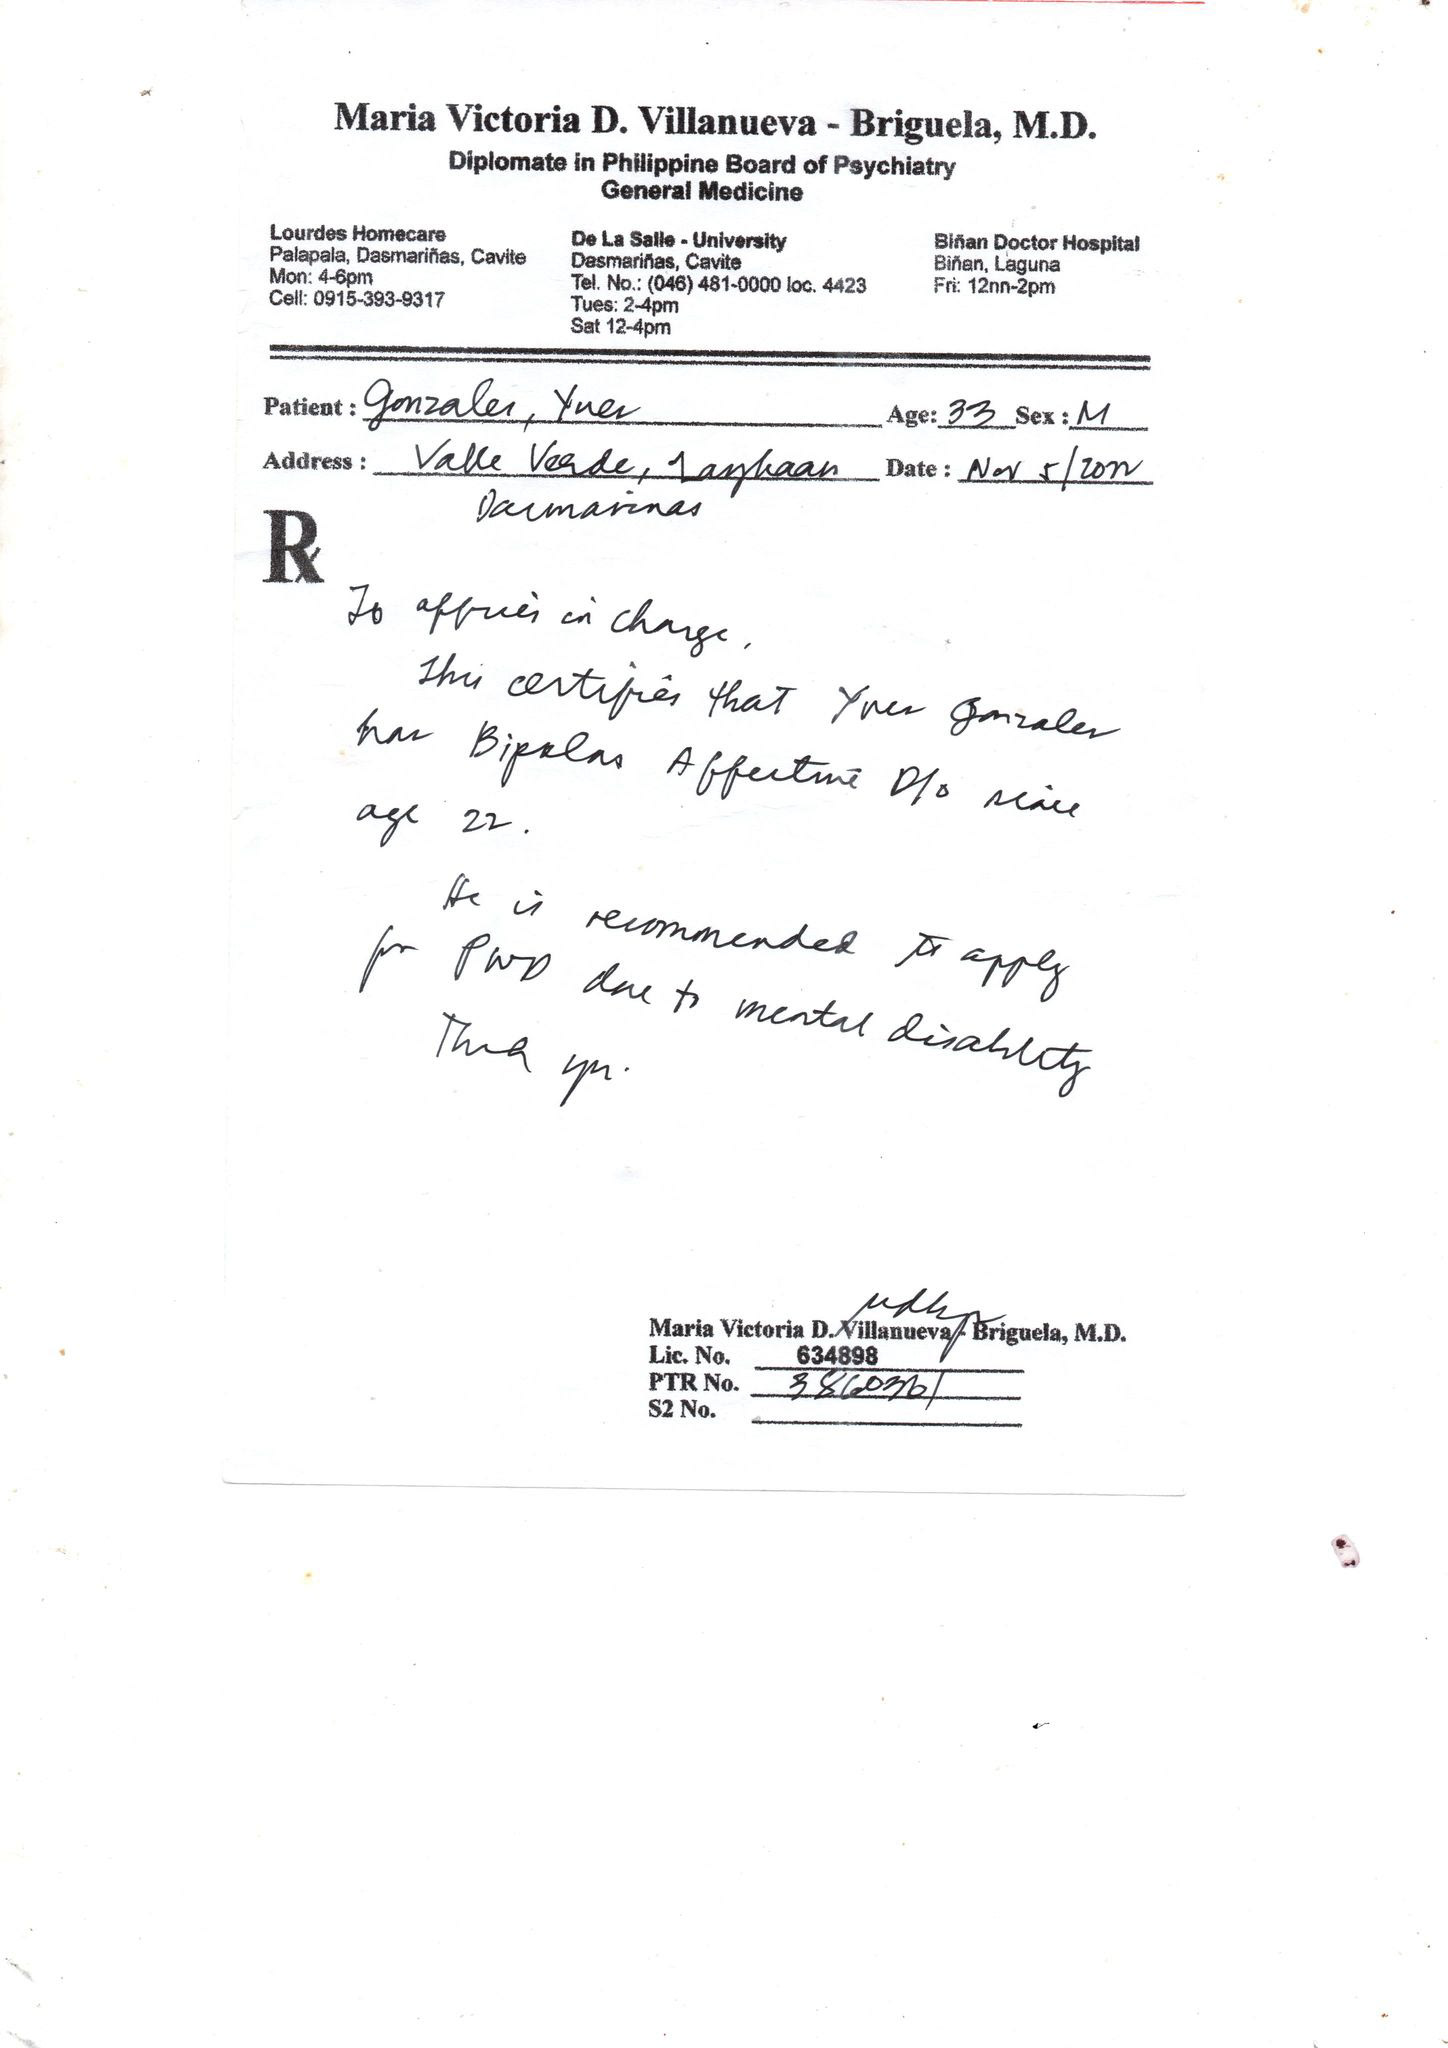 Maria Victoria D. Villanueva - Briguela, M.D.
Diplomate in Philippine Board of Psychiatry
General Medicine
Lourdes Homecare
Palapala, Dasmariñas, Cavite
Mon: 4-6pm
Cell: 0915-393-9317
De La Salle - University
Dasmariñas, Cavite
Tel. No.: (046) 481-0000 loc. 4423
Tues: 2-4pm
Sat 12-4pm
Biñan Doctor Hospital
Biñan, Laguna
Fri: 12nn-2pm
Patient : Gonzales, Yves Age: 33 Sex : M
Address : Valle Verde, Date : Nov 5/2022
Dasmarinas
Rx
To officer in charge,
This certifies that Yves Gonzales
has Bipolar Affective D/o since
age 22.
He is recommended to apply
for PWD due to mental disability
Thank you.
Maria Victoria D. Villanueva - Briguela, M.D.
Lic. No. 634898
PTR No.
S2 No.